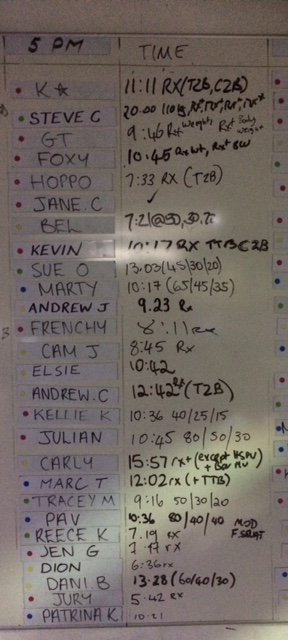 5 PM TIME
K☆ 11:11 RX (T2B, C2B)
STEVE C 20:00 110kg
GT 9:46 Rx+ Weights, Rx+ Body weight
FOXY 10:45 Rx wt, Rx+ BW
HOPPO 7:33 RX (T2B)
JANE C ✓
BEL 7:21@50,30.
KEVIN 10:17 RX TTB C2B
SUE O 13.03 (45/30/20)
MARTY 10:17 (65/45/35)
ANDREW J 9.23 Rx
FRENCHY 8:11 rx
CAM J 8:45 Rx
ELSIE 10:42
ANDREW.C 12:42 Rx (T2B)
KELLIE K 10:36 40/25/15
JULIAN 10:45 80/50/30
CARLY 15:57 rx+ (except HSPU)
MARC T 12:02 rx (+TTB)
TRACEY M 9:16 50/30/20
PAV 10:36 80/40/40 MOD
REECE K 7.19 rx F SQUAT
JEN G rx
DION 6:36 rx
DANI.B 13:28 (60/40/30)
JURY 5.42 RX
PATRINA K 10:21